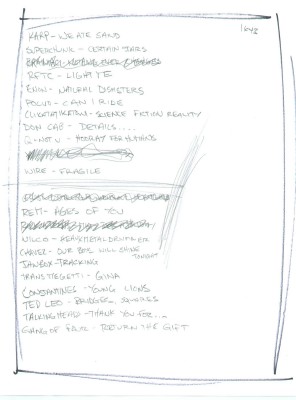 KARP - WE ATE SAND
SUPERCHUNK - CERTAIN STARS
RFTC - LIGHT YE
ENON - NATURAL DISASTERS
POLVO - CAN I RIDE
CLIKATATIKATOWI - SCIENCE FICTION REALITY
DON CAB - DETAILS....
Q-NOT U - HOORAY FOR HUMANS
WIRE - FRAGILE
REM - AGES OF YOU
WILCO - HEAVY METAL DRUMMER
OUR BOYS WILL SHINE TONIGHT
JAWBOX - TRACKING
TRANSMEGETTI - GINA
CONSTANTINES - YOUNG LIONS
TED LEO - BRIDGES, SQUARES
TALKING HEADS - THANK YOU FOR...
GANG OF FOUR - RETURN THE GIFT